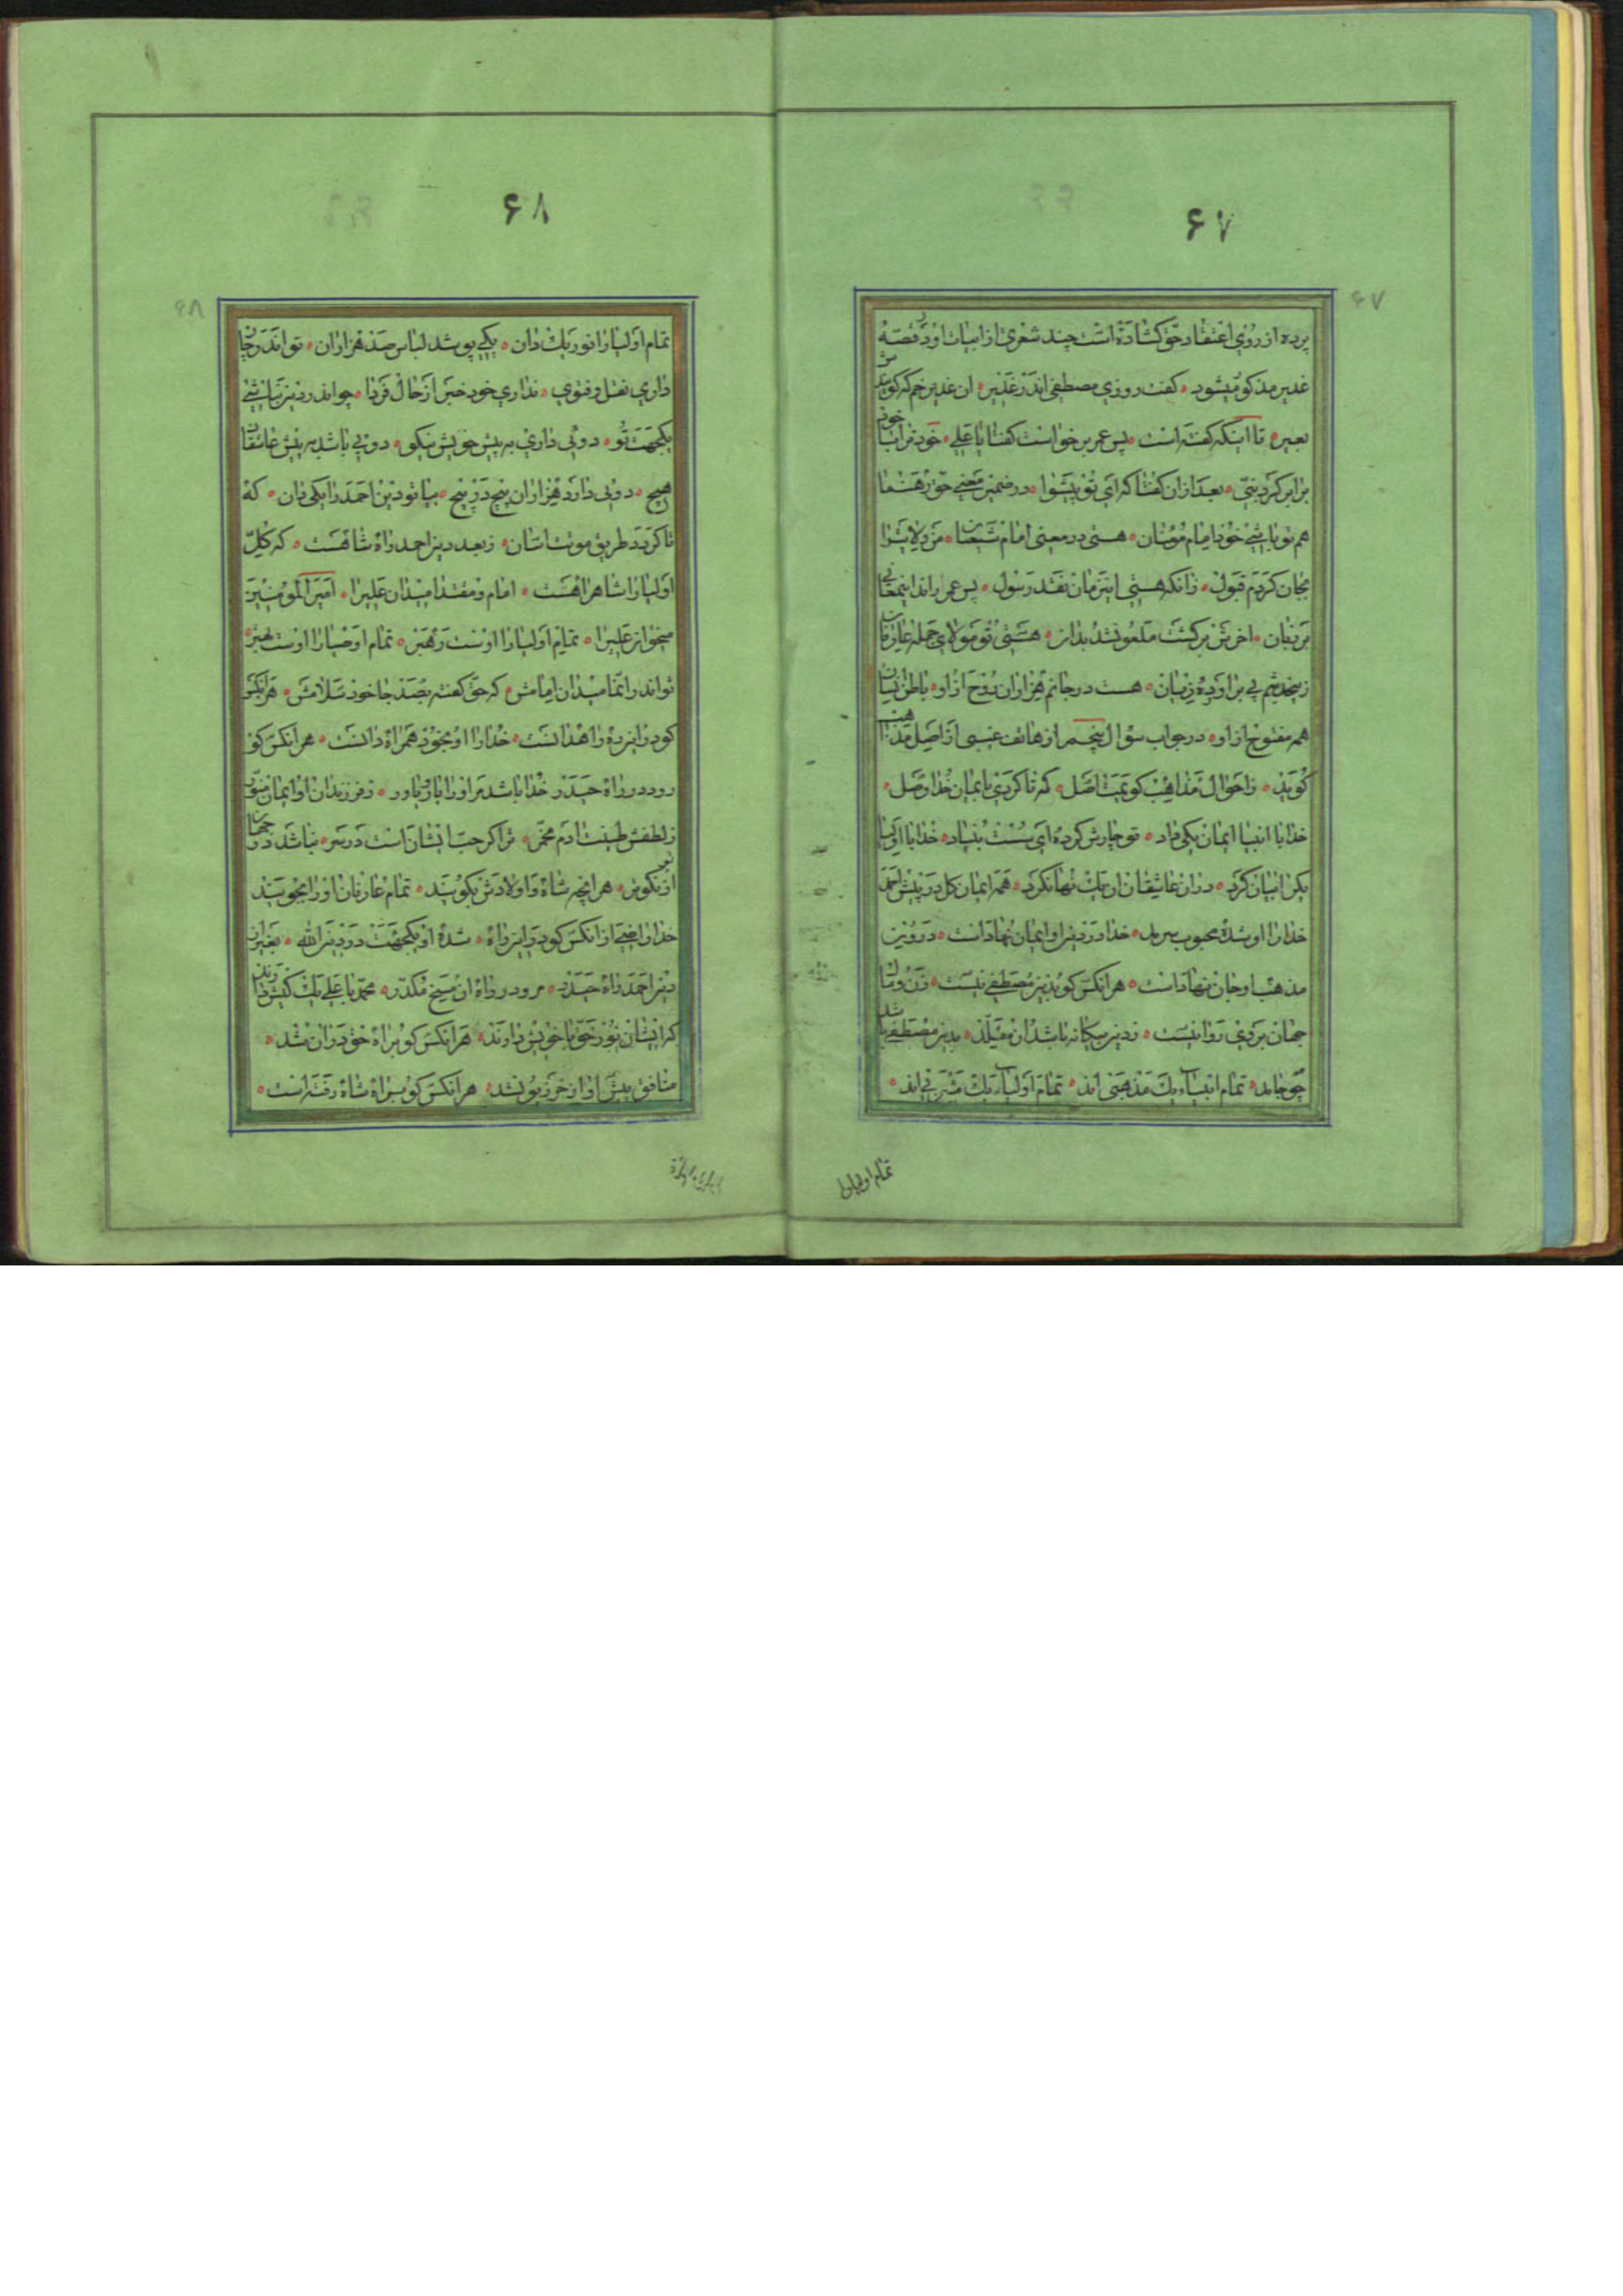 ۶۷
۶۷
پرده از روی اعتقاد حق کشاده است چند شعری از ابیات او در قصه
غدیر مذکور میشود کفت روزی مصطفی اندر غدیر ان غدیر خم که کویندش
بعیر تا اینکه کفته است پس عمر برخواست کفتا یا علی خود ترا با خود
برابر کرد نبی بعد از ان کفتا که ای تو پیشوا در ضمیر معنی حق رهنما
هم تو باشی خود امام مؤمنان هستی در معنی امام شیعیان من ولایت را
بجان کردم قبول زانکه هستی اینزمان نقد رسول پس عمر راند اینمعانی
بر زبان اخرش برکشت ملعون شد بدان هستی تو مولای جمله عارفان
زینحدیثم پی بر او ده زبان هست در جانم هزاران روح از او باطن
همه مفتوح از او در جواب سؤال پنجم از هاتف غیبی از اصل مذاهب
کوید ز احوال مذاهب کویمت اصل که تا کردی بایمان خدا وصل
خدا با انبیا ایمان یکی داد تو چارش کرده ای سست بنیاد خدا با اولیا
یکرا بیان کرد در ان عاشقان ان یک نهان کرد همه ایمان کل در پیش احمد
خدا را او شده محبوب سرمد خدا در دین او ایمان نهاد است درون
مذهب او جان نهاد است هر انکس کو بدین مصطفی نیست زن و مال
جهان بر وی روا نیست ز دین بیکانه باشد ان مقلد بدین مصطفی با شد
چو جاید تمام انبیاء یک مذهبی اند تمام اولیاء یک مشربی اند
تمام اولیا را
۶۸
۶۸
تمام اولیا را نور یک دان یکی پوشد لباس صد هزاران تو اندر جان
داری نقل و فتوی نداری خود خبر از حال فردا چو اندر دین نباشی
یکجهت تو دوئی داری به پیش خویش نیکو دوئی باشد به پیش عاشقان
هیچ دوئی دارد هزاران پیچ در پیچ بیا تو دین احمد را یکی دان که
تا کردد طریق موت اسان ز بعد دین احمد راه شاهست که کل
اولیا را شاهراهست امام و مقتدا میدان علیرا امیر المؤمنین
میخوان علیرا تمام اولیا را اوست رهبر تمام اوصیا را اوست بهتر
تو اندر انما میدان امامش که حق کفته بصد جا خود سلامش هر انکس
کو در این ره راهدانست خدا را او بخود همراه دانست هر انکس کو
رود در راه حیدر خدا باشد مر او را یار و یاور ز فرزندان او ایمان منور
ز لطفش طینت ادم مخمر ترا کر حب ایشان است در سر نباشد در جهان
از تو نکوتر هر انچه شاه و اولادش بکویند تمام عارفان او را بجویند
خدا راضی از انکس کو در این راه شده او یکجهت در دین الله بغیر از
دین احمد راه حیدر مرو در راه ان شیخ مکدر محمد با علی یک کیش دارند
که ایشان نور حق با خویش دارند هر انکس کو براه حق دران شد
منافق پیش او از خر زبون شد هر انکس کو براه شاه رفته است